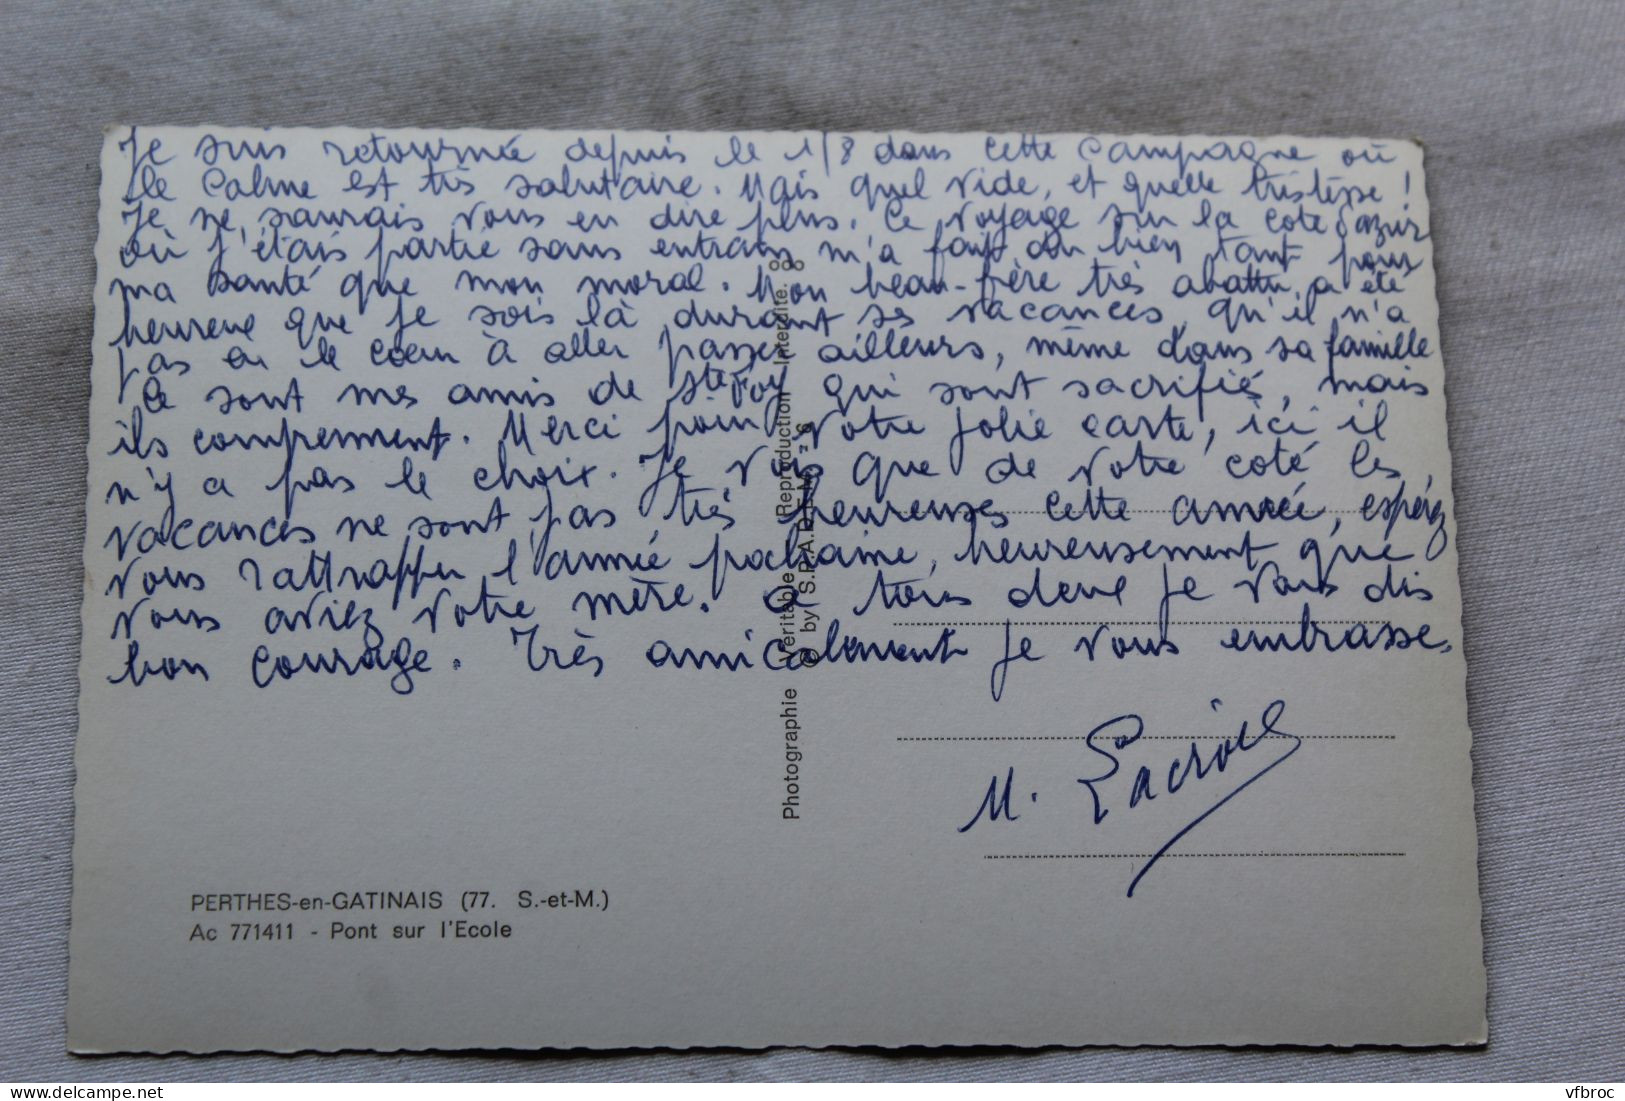 Je suis retournée depuis le 1/8 dans cette campagne où
le calme est très salutaire. Mais quel vide, et quelle tristesse !
Je ne saurais vous en dire plus. Ce voyage sur la cote d'azur
où j'étais partie sans entrain m'a fait du bien tant pour
ma santé que mon moral. Mon beau-frère très abattu a été
heureux que je sois là durant ses vacances, qu'il n'a
pas eu le cœur à aller passer ailleurs, même dans sa famille
Ce sont mes amis de Ste Foy qui sont sacrifiés, mais
ils comprennent. Merci pour votre jolie carte, ici il
n'y a pas le choix. Je vois que de votre coté les
vacances ne sont pas très heureuses cette année, espérez
vous rattrapper l'année prochaine, heureusement que
vous aviez votre mère. A tous deux je vous dis
bon courage. Très amicalement je vous embrasse.
M. Lacroix
Photographie Véritable. Reproduction Interdite.
© by S.P.A.D.E.M.
PERTHES-en-GATINAIS (77. S.-et-M.)
Ac 771411 - Pont sur l'Ecole
vfbroc